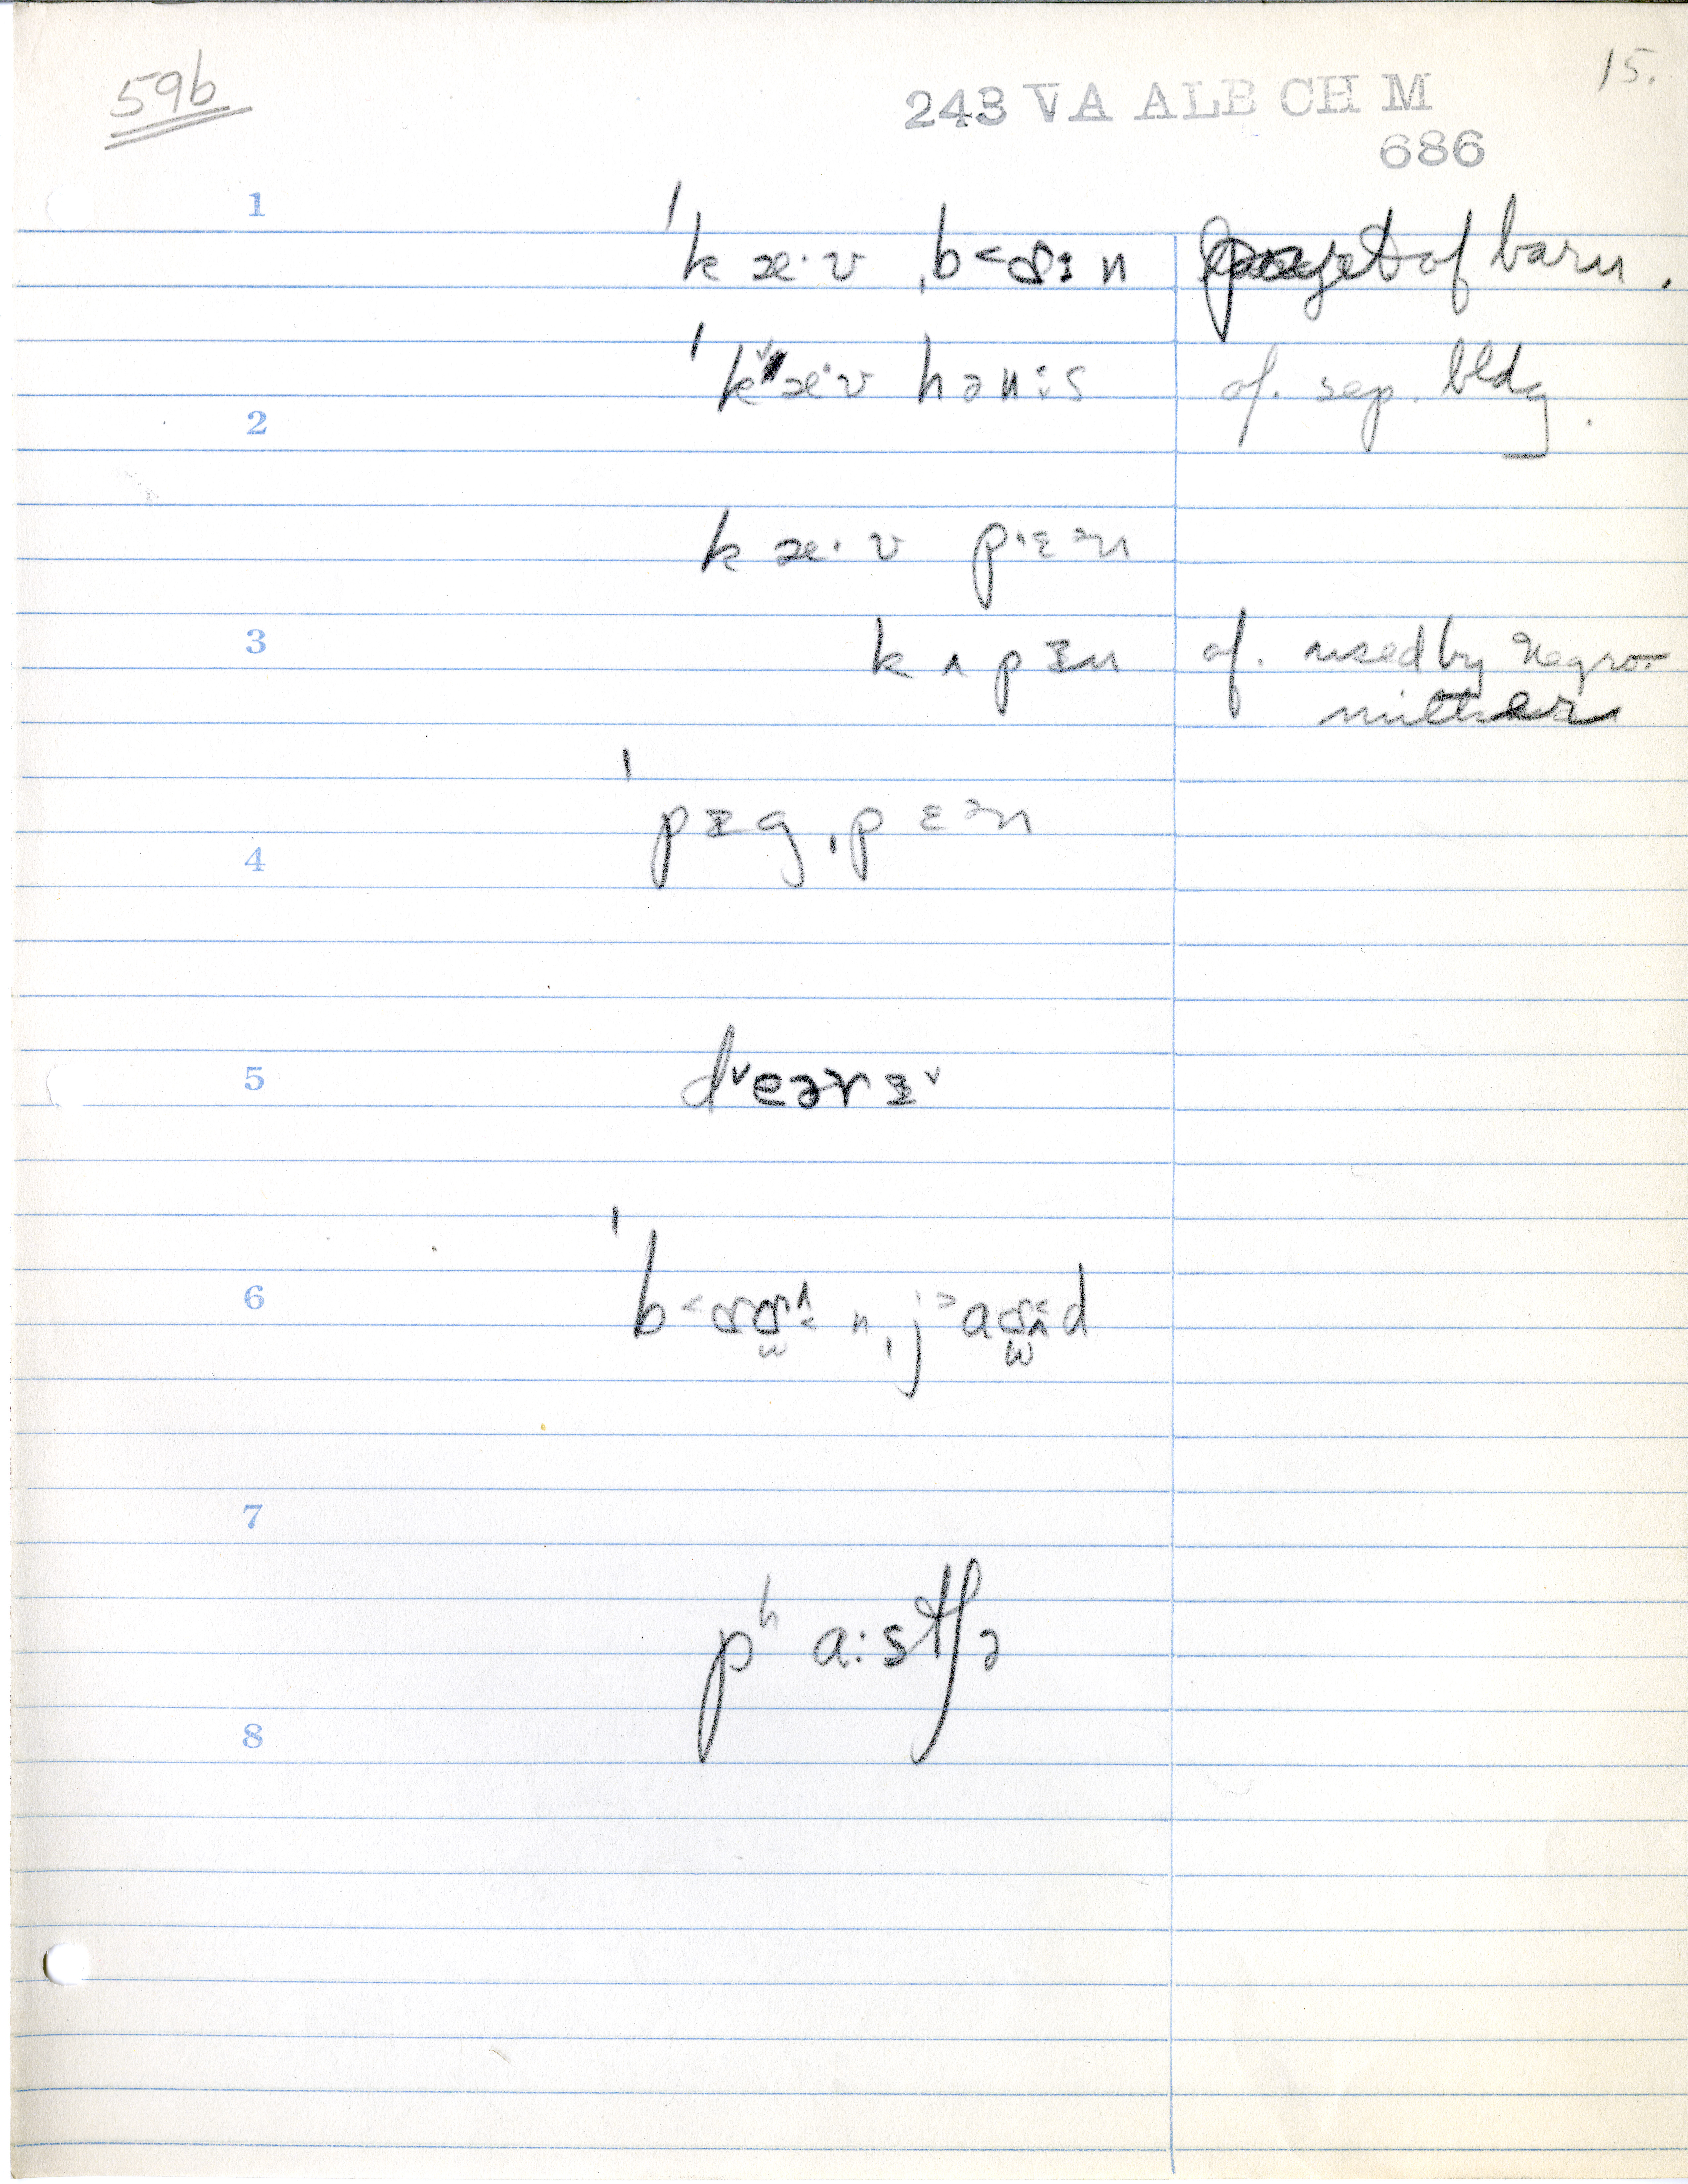 59b
15.
243 VA ALB CH M
686
1
ˈkæ·v ˌb<ɒːn part of barn.
ˈkˇæ·v hənːs of. sep. bldg.
2
kæ·v pɛən
3
kʌpɪn of. used by Negro
ˈpɪgˌpɛən
4
5
dˇeərɪˇ
6
7
pʰa:stʃə
8